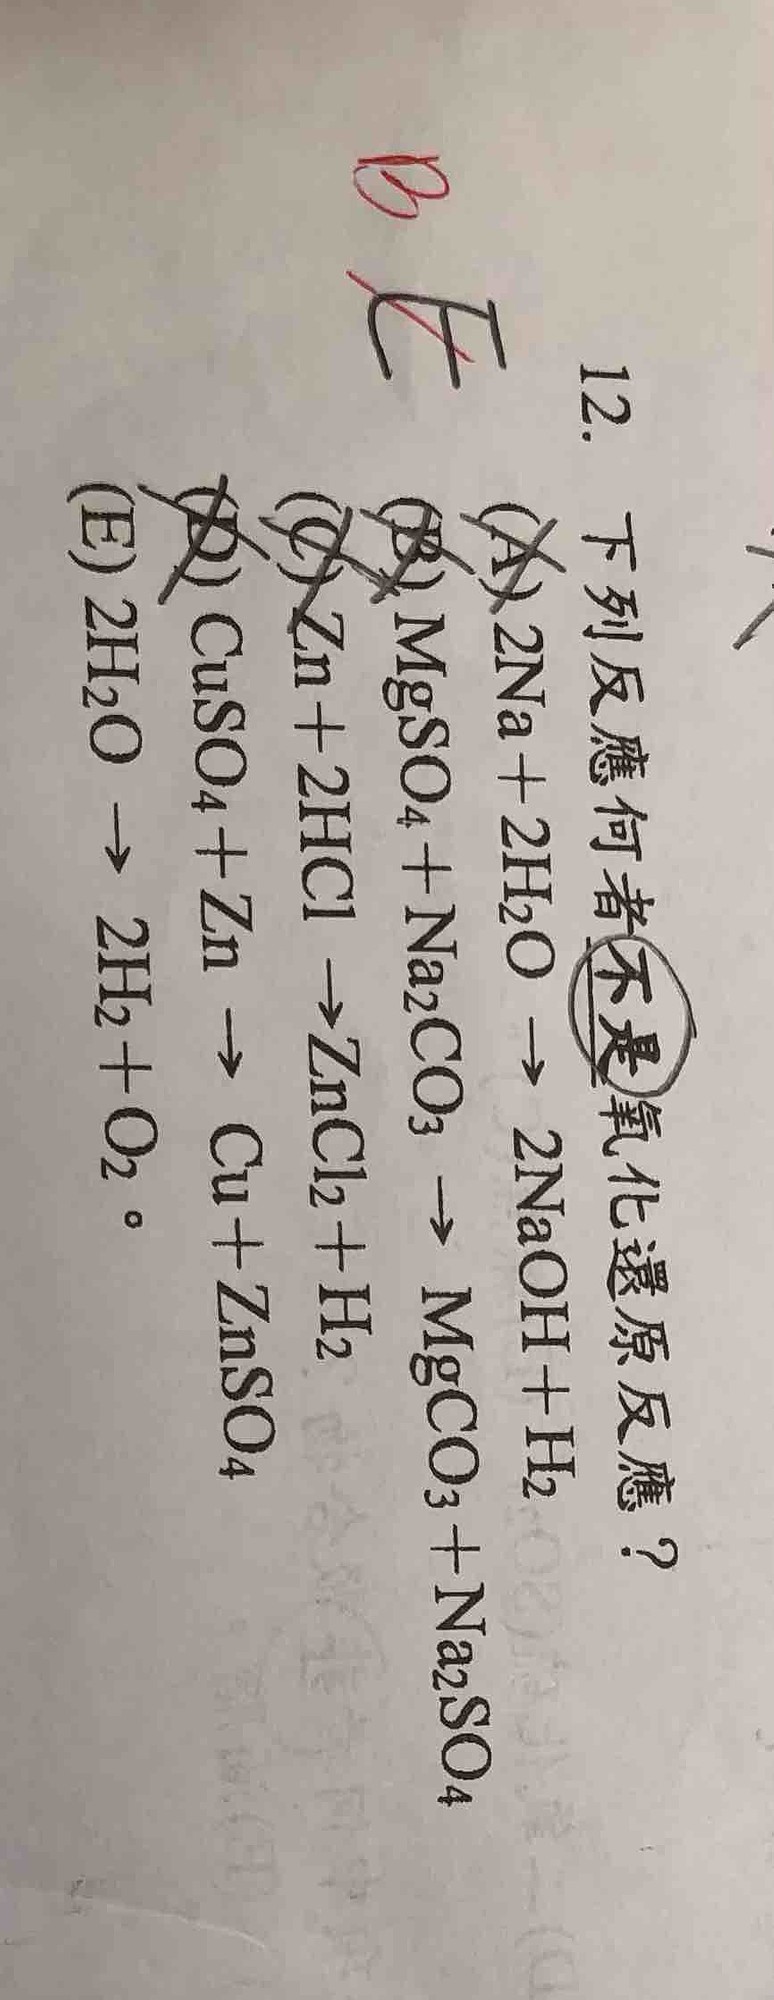 12. 下列反應何者不是氧化還原反應？
B E
(A) 2Na+2H₂O → 2NaOH+H₂
(B) MgSO₄+Na₂CO₃ → MgCO₃+Na₂SO₄
(C) Zn+2HCl →ZnCl₂+H₂
(D) CuSO₄+Zn → Cu+ZnSO₄
(E) 2H₂O → 2H₂+O₂。